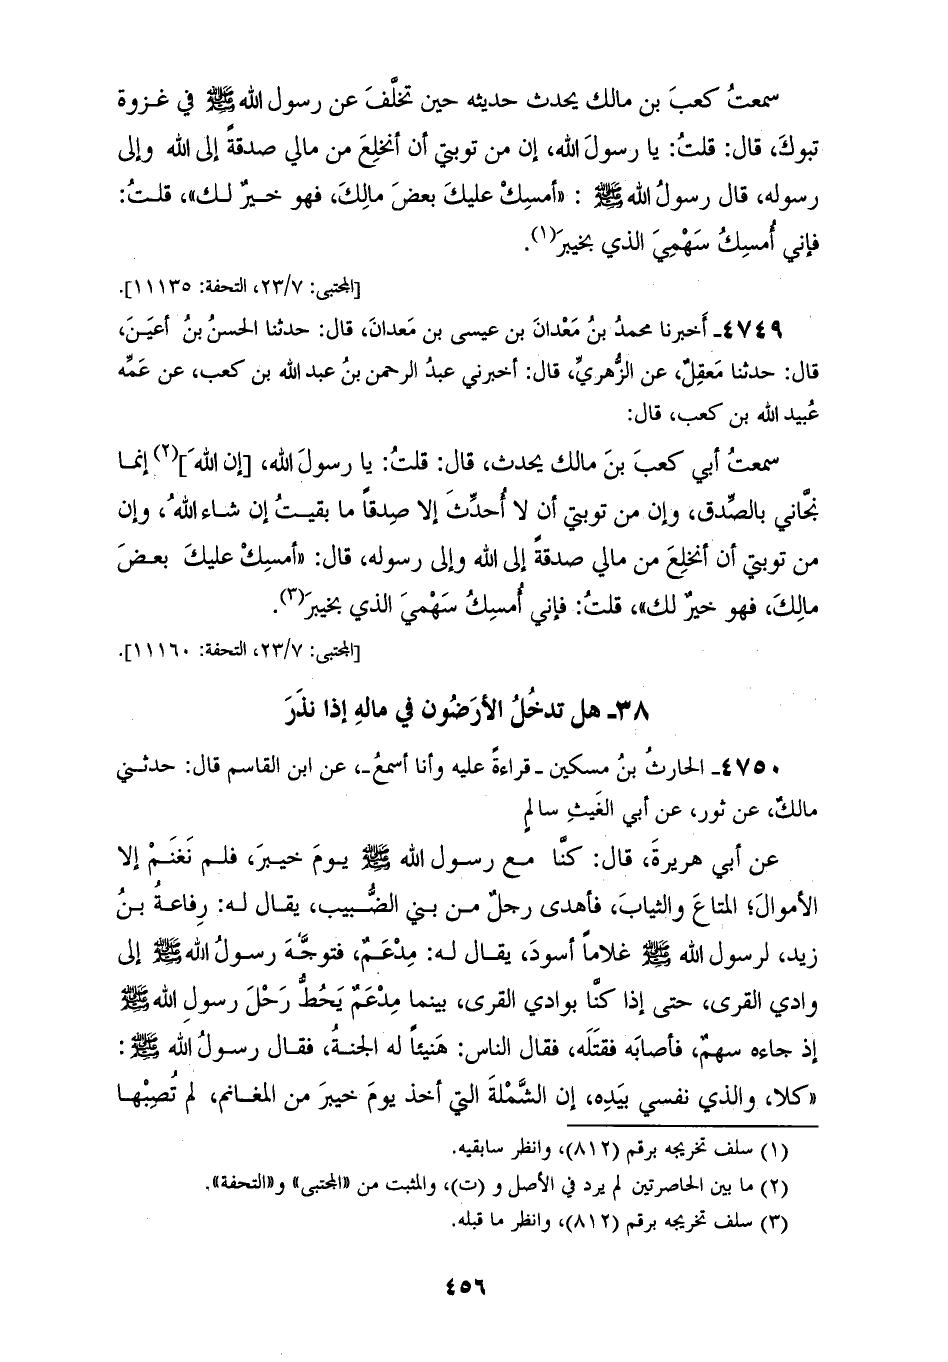 سمعتُ كعبَ بن مالك يحدث حديثه حين تخلَّفَ عن رسول الله ﷺ في غزوة
تبوكَ، قال: قلتُ: يا رسولَ الله، إن من توبتي أن أنخلِعَ من مالي صدقةً إلى الله وإلى
رسوله، قال رسولُ الله ﷺ : «أمسِكْ عليكَ بعضَ مالِكَ، فهو خيرٌ لك»، قلتُ:
فإني أُمسِكُ سَهْمِيَ الذي بخيبرَ(١).
[المجتبى: ٢٣/٧، التحفة: ١١١٣٥].
٤٧٤٩ـ أَخبرنا محمدُ بنُ مَعْدانَ بن عيسى بن مَعدانَ، قال: حدثنا الحسنُ بنُ أعيَنَ،
قال: حدثنا مَعقِلٌ، عن الزُّهريِّ، قال: أخبرني عبدُ الرحمن بنُ عبد الله بن كعب، عن عَمِّه
عُبيد الله بن كعب، قال:
سمعتُ أبي كعبَ بنَ مالك يحدث، قال: قلتُ: يا رسولَ الله، [إن اللهَ](٢) إنما
نجَّاني بالصِّدق، وإن من توبتي أن لا أُحدِّثَ إلا صِدقاً ما بقيتُ إن شاء اللهُ، وإن
من توبتي أن أنخلِعَ من مالي صدقةً إلى الله وإلى رسوله، قال: «أمسِكْ عليكَ بعضَ
مالِكَ، فهو خيرٌ لك»، قلتُ: فإني أُمسِكُ سَهْميَ الذي بخيبرَ(٣).
[المجتبى: ٢٣/٧، التحفة: ١١١٦٠].
٣٨ـ هل تدخُلُ الأرَضُون في مالهِ إذا نذَرَ
٤٧٥٠ـ الحارثُ بنُ مسكين ـ قراءةً عليه وأنا أسمعُ ـ، عن ابن القاسم قال: حدثني
مالكٌ، عن ثور، عن أبي الغَيثِ سالمٍ
عن أبي هريرةَ، قال: كنَّا مع رسول الله ﷺ يومَ خيبرَ، فلم نَغنَمْ إلا
الأموالَ؛ المتاعَ والثيابَ، فأهدى رجلٌ من بني الضُّبيب، يقال له: رِفاعةُ بنُ
زيد، لرسول الله ﷺ غلاماً أسودَ، يقال له: مِدْعَمٌ، فتوجَّهَ رسولُ الله ﷺ إلى
وادي القرى، حتى إذا كنَّا بوادي القرى، بينما مِدْعَمٌ يَحُطُّ رَحْلَ رسولِ الله ﷺ
إذ جاءه سهمٌ، فأصابَه فقتَلَه، فقال الناس: هَنيئاً له الجنةُ، فقال رسولُ الله ﷺ :
«كلا، والذي نفسي بيَدِه، إن الشَّمْلةَ التي أخذ يومَ خيبرَ من المغانم، لم تُصِبْها
(١) سلف تخريجه برقم (٨١٢)، وانظر سابقيه.
(٢) ما بين الحاصرتين لم يرد في الأصل و (ت)، والمثبت من «المجتبى» و«التحفة».
(٣) سلف تخريجه برقم (٨١٢)، وانظر ما قبله.
٤٥٦